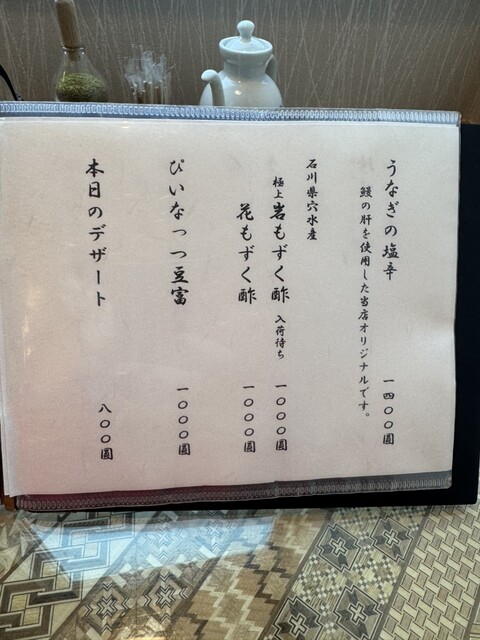 うなぎの塩辛 一四〇〇圓
鰻の肝を使用した当店オリジナルです。
石川県穴水産
極上 岩もずく酢 入荷待ち 一〇〇〇圓
花もずく酢 一〇〇〇圓
ぴいなっつ豆富 一〇〇〇圓
本日のデザート 八〇〇圓